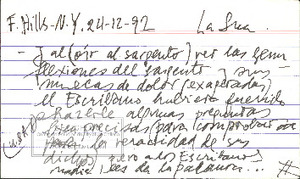 F. Hills - N.Y. 24-12-92 La Sra.
- Y al (oír al sargento) ver las genu
flexiones del sargento y sus
muecas de dolor (exageradas)
el Escribano hubiera querido
hacerle algunas preguntas
precisas para comprobar
la veracidad de sus
dichos, pero a los Escribanos
nadie les da la palabra...